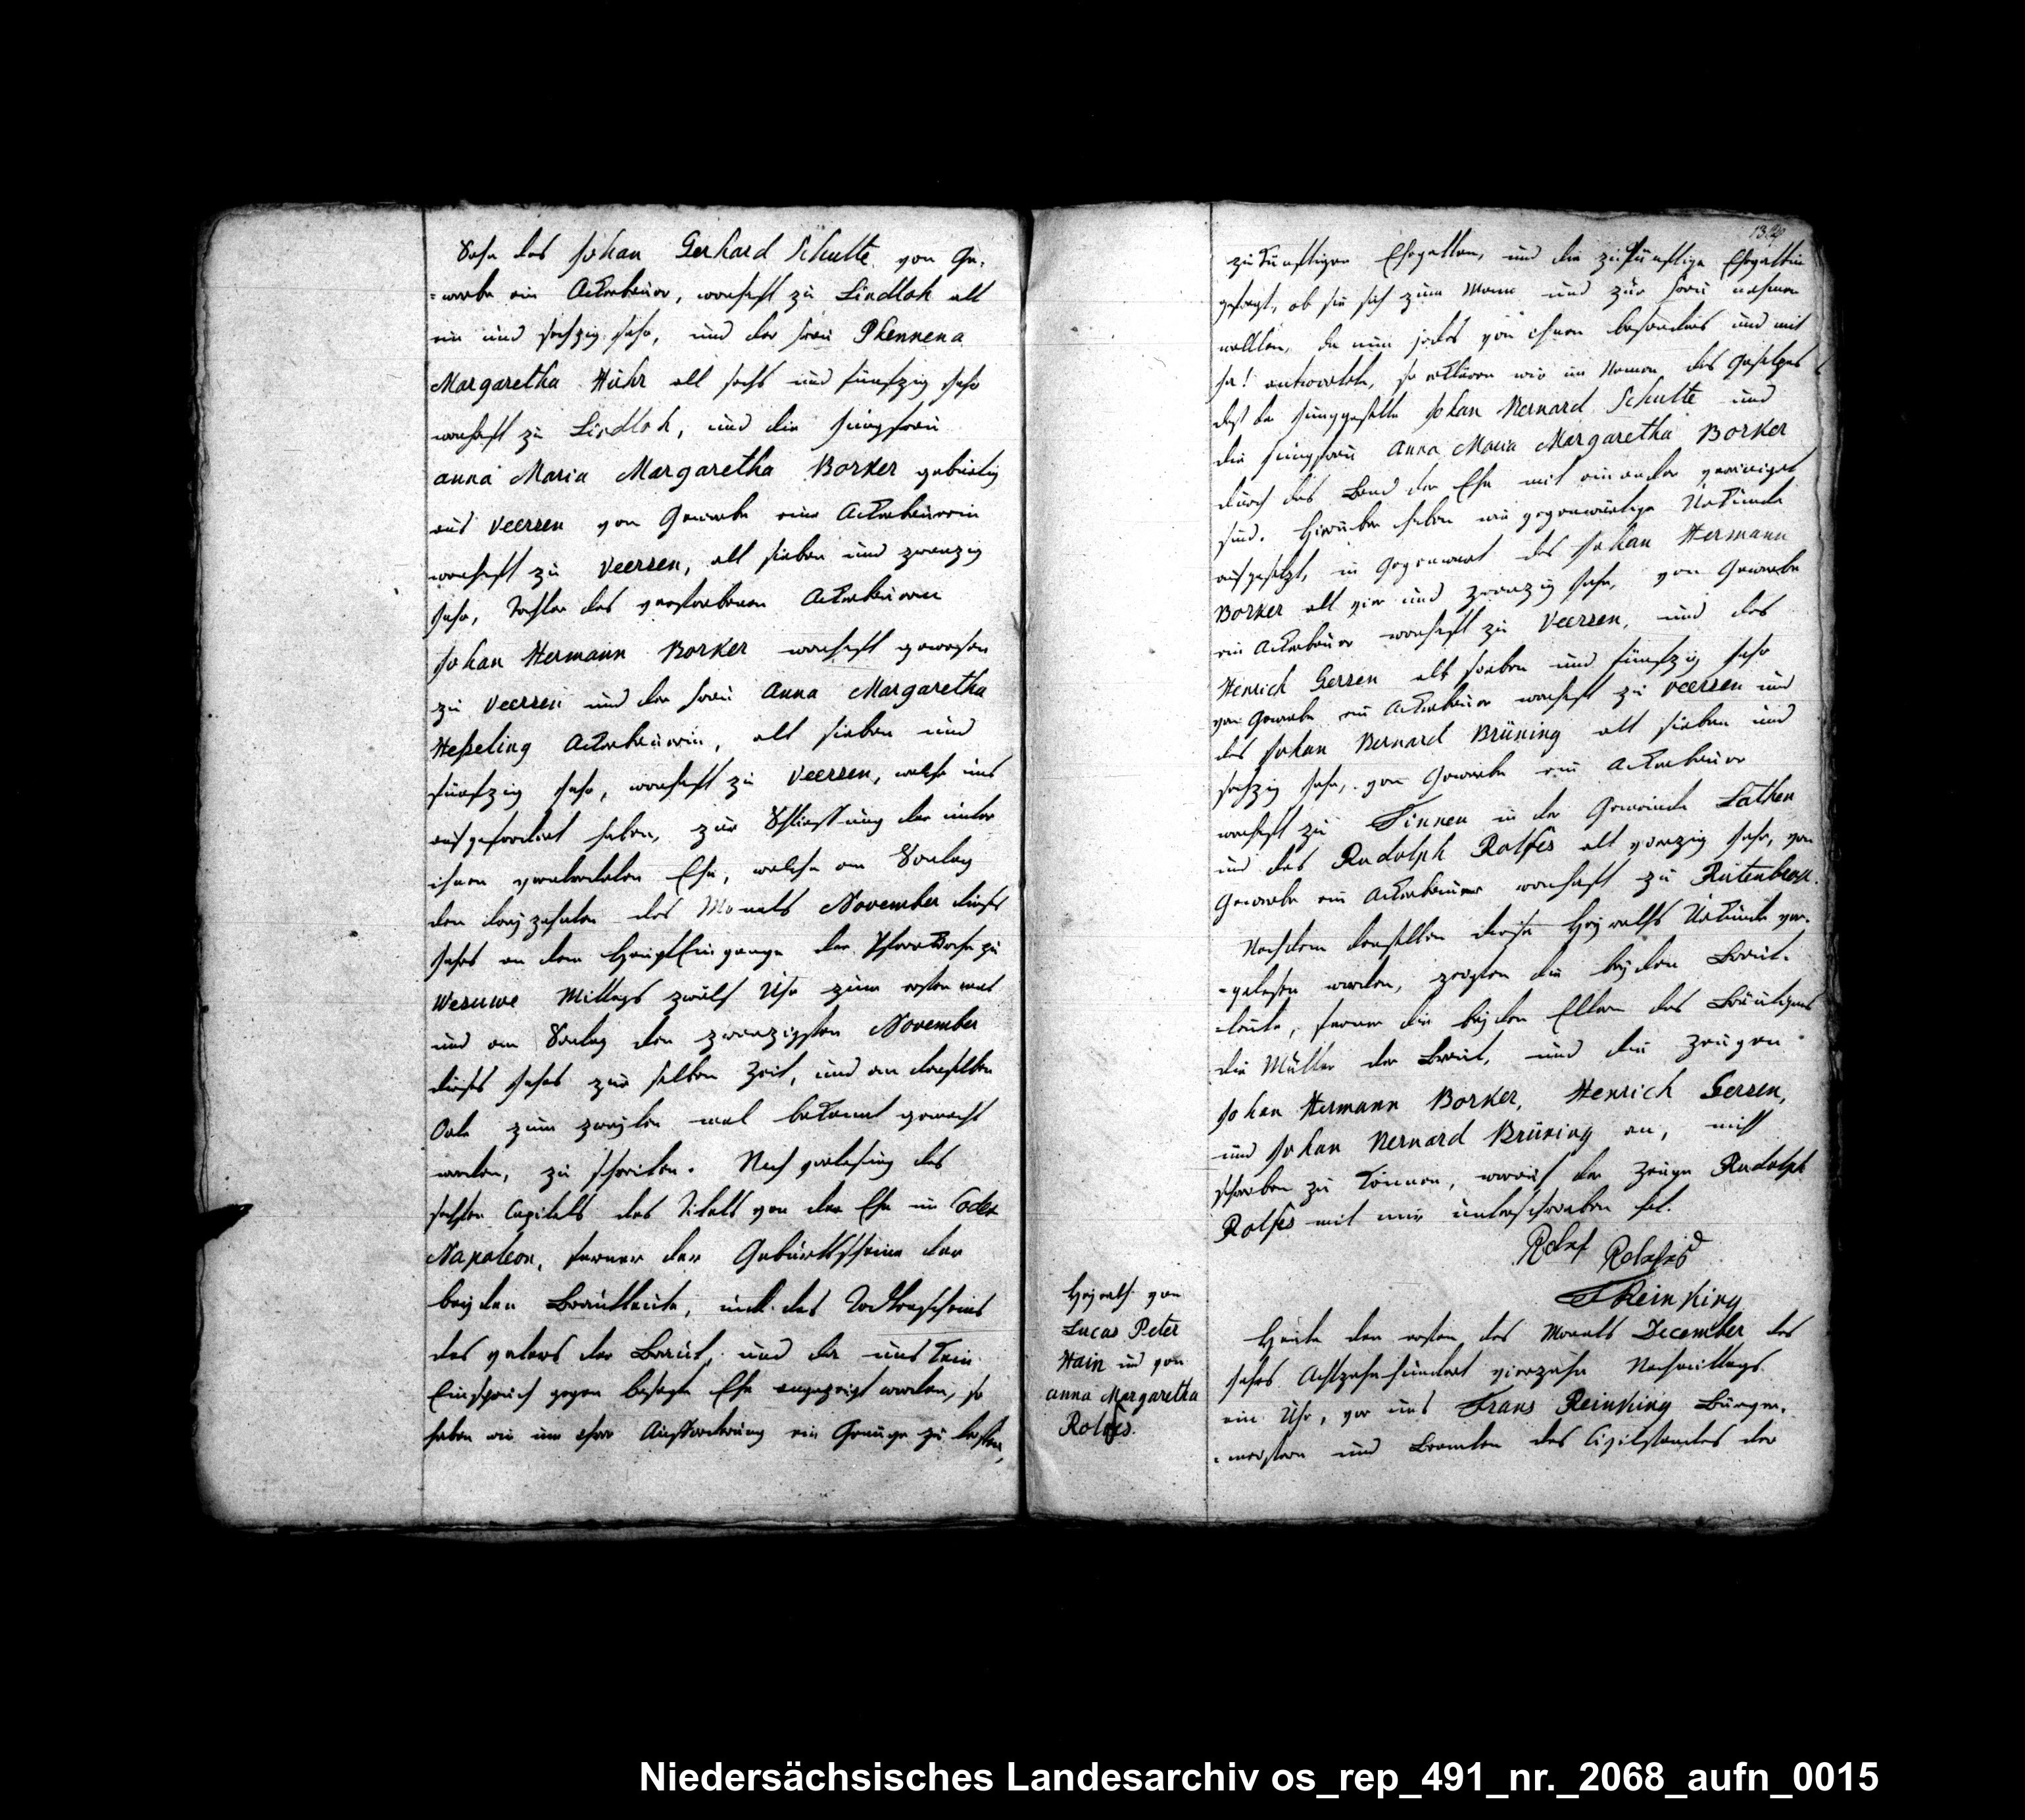 Sohn des Johan Gerhard Schulte von Ge-
=werbe ein Ackerbauer, wonhaft zu Lindloh alt
ein und sechzig Jahr, und der Frau Phennena
Margaretha Hühr alt sechs und fünfzig Jahr
wonhaft zu Lindloh, und die Jungfrau
anna Maria Margaretha Borker gebürtig
aus Veersen von Gewerbe eine Ackerbäuerin
wonhaft zu Veersen, alt sieben und zwanzig
Jahr, Tochter des verstorbenen Ackerbauern
Johan Hermann Borker wonhaft gewesen
zu Veersen und der Frau Anna Margaretha
Heßeling Ackerbäuerin, alt sieben und
fünfzig Jahr, wonhaft zu Veersen, welche uns
aufgefordert haben, zur Schliessung der unter
ihnen verabredeten Ehe, welche am Sontag
den dreyzehnten des Monats November dieses
Jahrs an dem HauptEingange der Pfarrkirche zu
Wesuwe Mittags zwölf Uhr zum ersten mal
und am Sontag den zwanzigsten November
dieses Jahrs zur selben Zeit, und an demselben
Orte zum zweyten mal bekannt gemacht
worden, zu schreiten. Nach verlesung des
sechsten Capitels des Titels von der Ehe im Codex
Napoleon, ferner der Geburtsscheine der
beyden Brautleute, und des Todtenscheines
des vaters der Braut, und da uns kein
Einspruch gegen besagte Ehe angezeigt worden, so
haben wir um ihrer Aufforderung ein Genüge zu leisten,
zukünftigen Ehegatten, und die zukünftige Ehegattin
gefragt, ob sie sich zum Mann und zur Frau nehmen
wollten, da nun jedes von ihnen besonders und mit
ja! antwortete, so erklären wir im Namen des Gesetzes
daß der Junggeselle Johan Bernard Schulte und
die Jungfrau Anna Maria Margaretha Borker
durch das Band der Ehe mit einander vereiniget
sind. Hierüber haben wir gegenwärtige Urkunde
aufgesetzt, in Gegenwart des Johan Hermann
Borker alt vier und zwanzig Jahr, von Gewerbe
ein Ackerbauer wonhaft zu Veersen, und des
Henrich Gersen alt sieben und fünfzig Jahr
von Gewerbe ein Ackerbauer wonhaft zu Veersen und
des Johan Bernard Brüning alt sieben und
sechzig Jahr, von Gewerbe ein Ackerbauer
wonhaft zu Tinnen in der Gemeinde Lathen
und des Rudolph Rolfes alt vierzig Jahr, von
Gewerbe ein Ackerbauer wonhaft zu Rütenbrock.
Nachdem denselben diese Heyraths Urkunde vor-
=gelesen worden, zeigten die beyden Braut-
leute, ferner die beyden Eltern des Bräutigams
die Mutter der Braut, und die Zeugen
Johan Hermann Borker, Henrich Gersen,
und Johan Bernard Brüning an, nicht
schreiben zu können, worauf der Zeuge Rudolph
Rolfes mit mir unterschrieben hat.
Rolf Rolfes
FReinking
Heyrath von
Lucas Peter
Hain und von
anna Margaretha
Rolfes.
Heute den ersten des Monats December des
Jahrs Achtzehnhundert vierzehn Nachmittags
ein Uhr, vor uns Frans Reinking Bürger-
=meistern und Beamten des Civilstandes der
Niedersächsisches Landesarchiv os_rep_491_nr._2068_aufn_0015